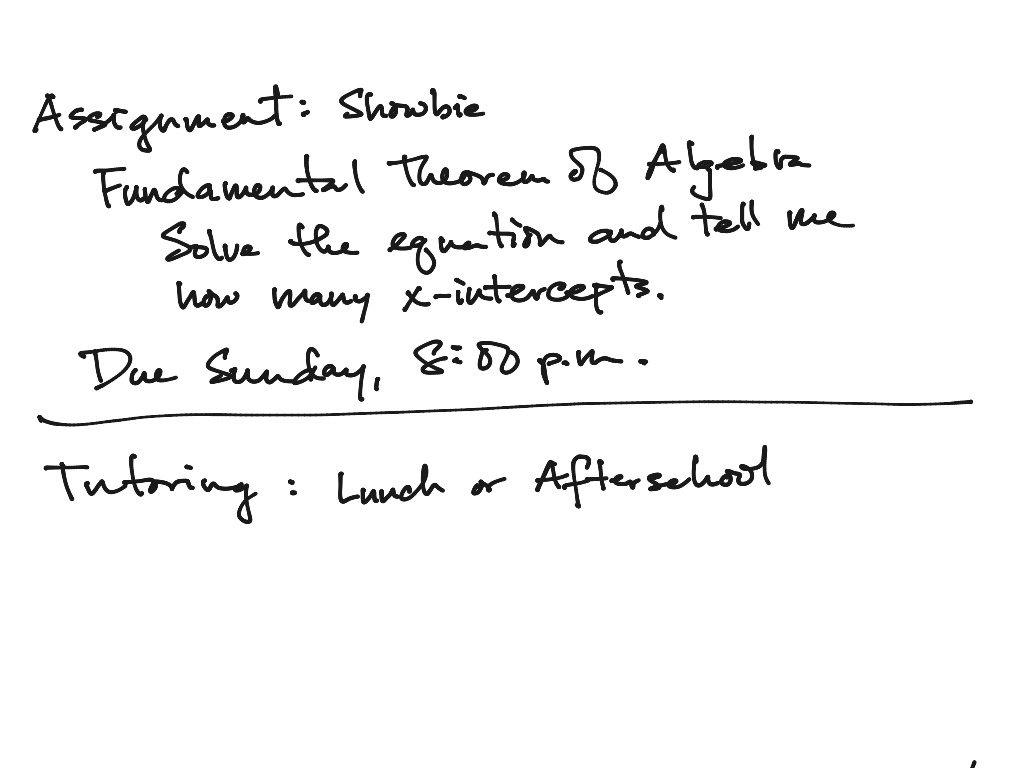 Assignment: Showbie
Fundamental Theorem of Algebra
Solve the equation and tell me
how many x-intercepts.
Due Sunday, 8:00 p.m.
Tutoring: Lunch or Afterschool